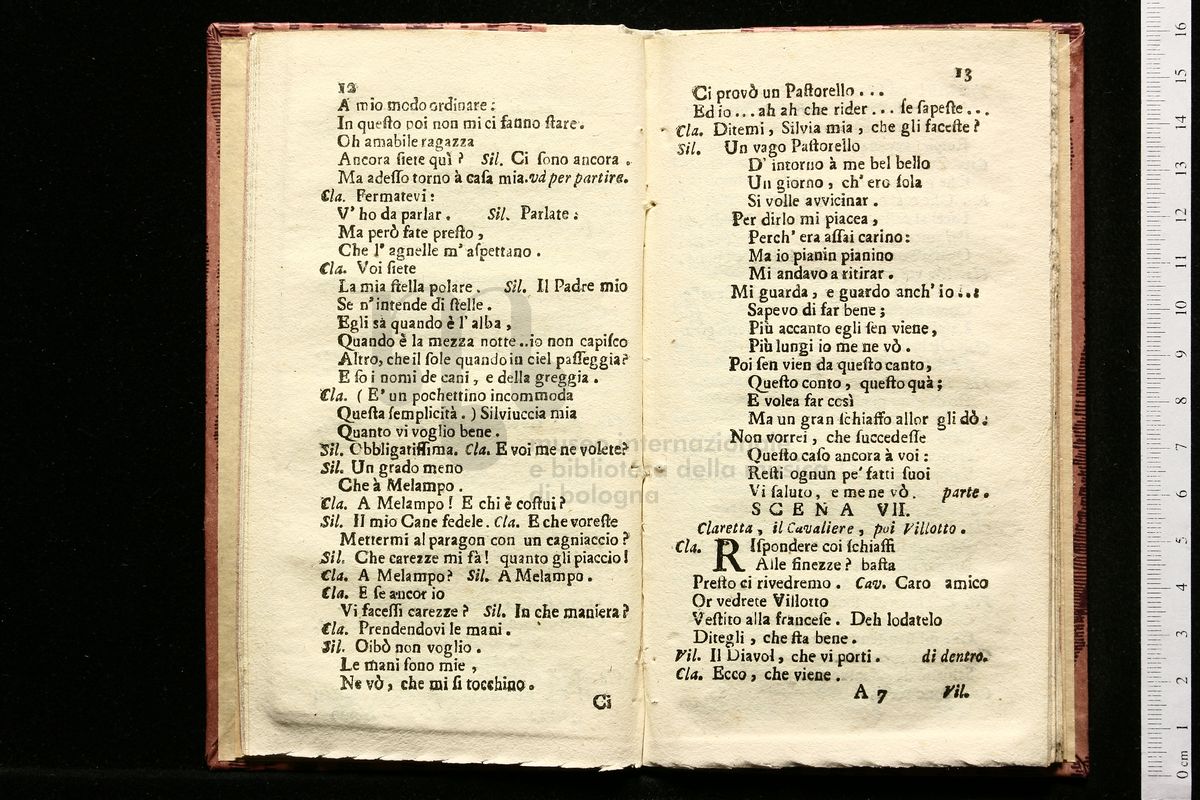 12
A mio modo ordinare:
In questo poi non mi ci fanno stare.
Oh amabile ragazza
Ancora siete quì? Sil. Ci sono ancora.
Ma adesso torno à casa mia. và per partire.
Cla. Fermatevi:
V' ho da parlar. Sil. Parlate:
Ma però fate presto,
Che l' agnelle m' aspettano.
Cla. Voi siete
La mia stella polare. Sil. Il Padre mio
Se n' intende di stelle.
Egli sà quando è l' alba,
Quando è la mezza notte..io non capisco
Altro, che il sole quando in ciel passeggia?
E so i nomi de cani, e della greggia.
Cla. (E' un pochettino incommoda
Questa semplicità.) Silviuccia mia
Quanto vi voglio bene.
Sil. Obbligatissima. Cla. E voi me ne volete?
Sil. Un grado meno
Che à Melampo.
Cla. A Melampo! E chi è costui?
Sil. Il mio Cane fedele. Cla. E che voreste
Mettermi al paragon con un cagniaccio?
Sil. Che carezze mi fà! quanto gli piaccio!
Cla. A Melampo? Sil. A Melampo.
Cla. E se ancor io
Vi facessi carezze? Sil. In che maniera?
Cla. Prendendovi le mani.
Sil. Oibò non voglio.
Le mani sono mie,
Ne vò, che mi si tocchino.
Ci
13
Ci provò un Pastorello...
Ed io...ah ah che rider... se sapeste...
Cla. Ditemi, Silvia mia, che gli faceste?
Sil. Un vago Pastorello
D' intorno à me bel bello
Un giorno, ch' ero sola
Si volle avvicinar.
Per dirlo mi piacea,
Perch' era assai carino:
Ma io pianin pianino
Mi andavo a ritirar.
Mi guarda, e guardo anch' io...:
Sapevo di far bene;
Più accanto egli sen viene,
Più lungi io me ne vò.
Poi sen vien da questo canto,
Questo conto, questo quà;
E volea far così
Ma un gran schiaffo allor gli dò:
Non vorrei, che succedesse
Questo caso ancora à voi:
Resti ognun pe' fatti suoi
Vi saluto, e me ne vò. parte.
SCENA VII.
Claretta, il Cavaliere, poi Villotto.
Cla. RIspondere coi schiaffi
Alle finezze? basta
Presto ci rivedremo. Cav. Caro amico
Or vedrete Villotto
Vestito alla francese. Deh lodatelo
Ditegli, che sta bene.
Vil. Il Diavol, che vi porti. di dentro.
Cla. Ecco, che viene.
A 7 Vil.
museo internazionale
e biblioteca della musica
di bologna
0 cm 1 2 3 4 5 6 7 8 9 10 11 12 13 14 15 16